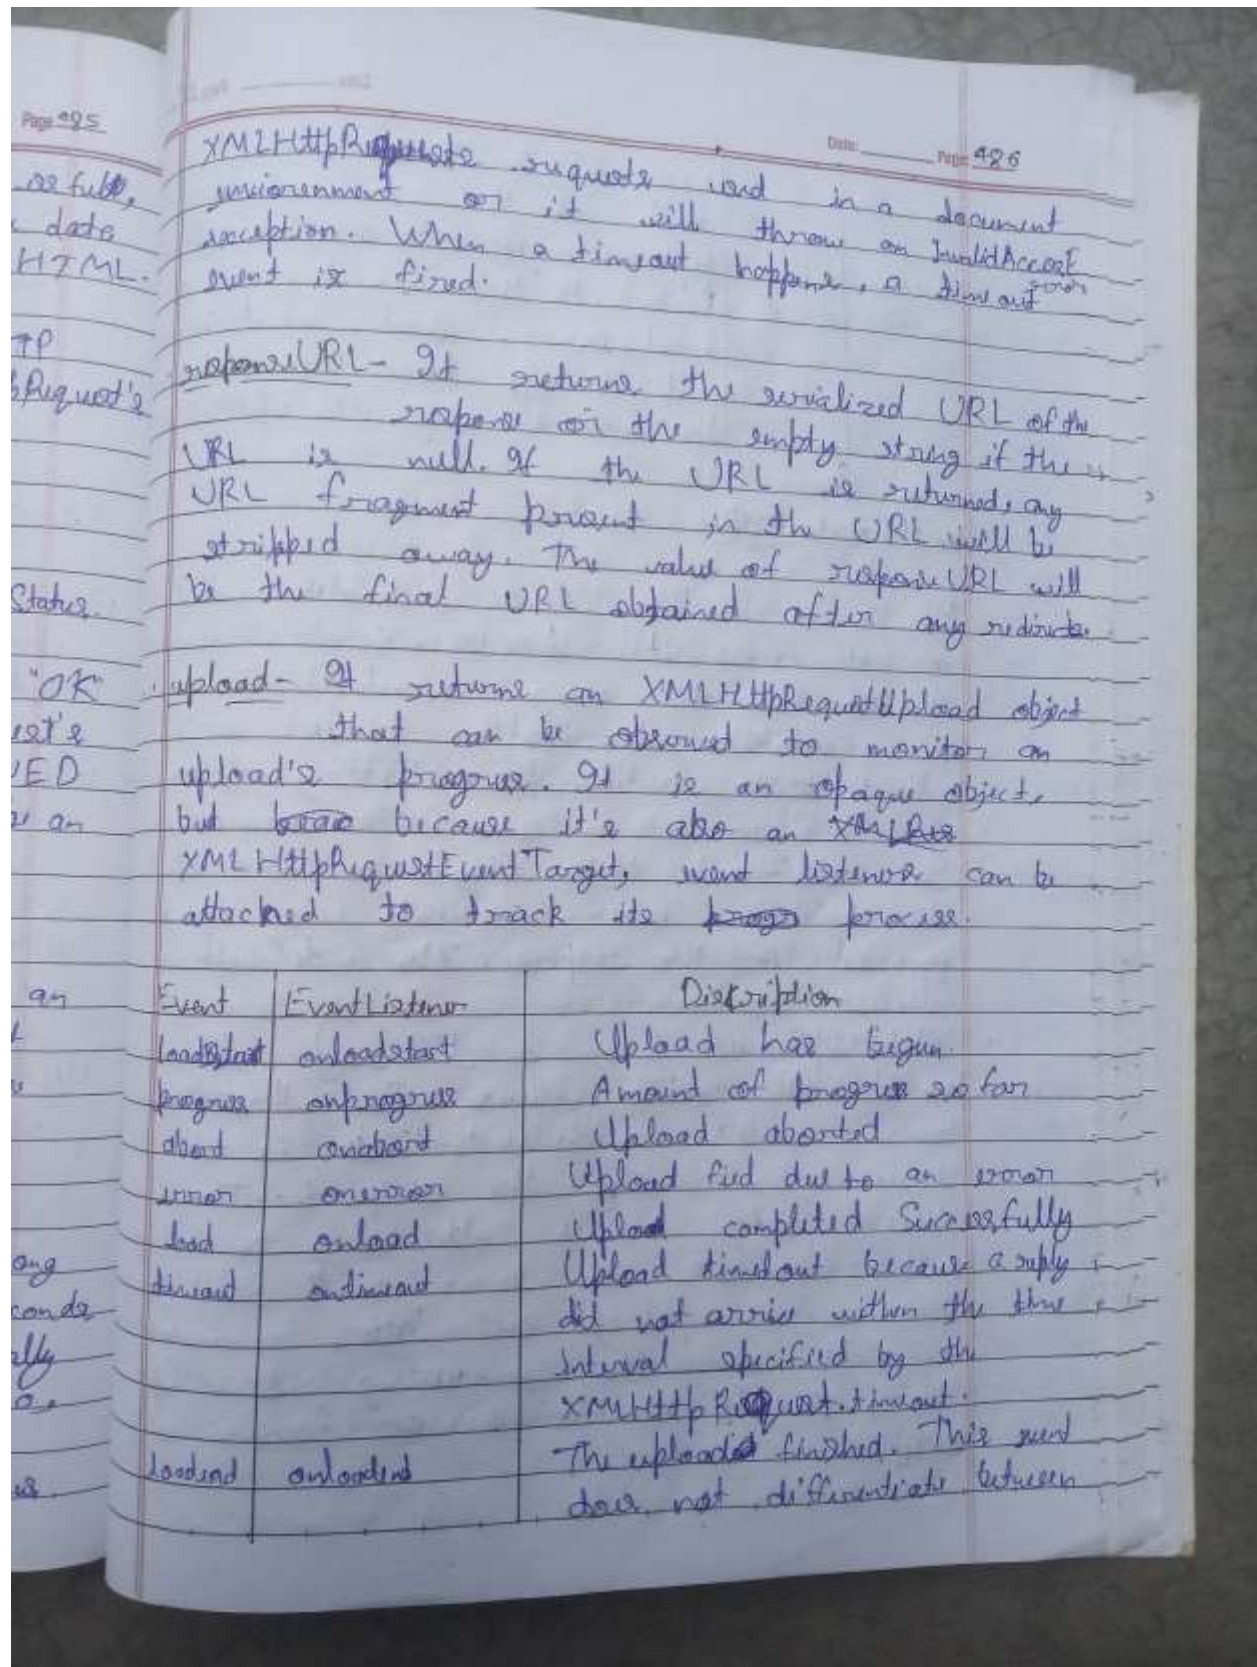 Page 485
se ful,
data
HTML.
TP
Request's
Status
"OK"
est's
ED
an
an
ong
conds
lly
Date: Page: 486
XMLHttpRequests requests used in a document
environment or it will throw an InvalidAccess
error
exception. When a timeout happens, a timeout
event is fired.
responseURL - It returns the serialized URL of the
response or the empty string if the
URL is null. If the URL is returned, any
URL fragment present in the URL will be
stripped away. The value of responseURL will
be the final URL obtained after any redirects.
upload - It returns an XMLHttpRequestUpload object
that can be observed to monitor an
upload's progress. It is an opaque object,
but because it's also an
XMLHttpRequestEventTarget, event listeners can be
attached to track its process.
Event EventListener Discription
loadstart onloadstart Upload has begun.
progress onprogress Amount of progress so far
abort onabort Upload aborted
error onerror Upload due to an error
load onload Upload completed Successfully
timeout ontimeout Upload timedout because a reply
did not arrive within the time
interval specified by the
XMLHttpRequest.timeout.
loadend onloadend The upload finished. This event
does not differentiate between